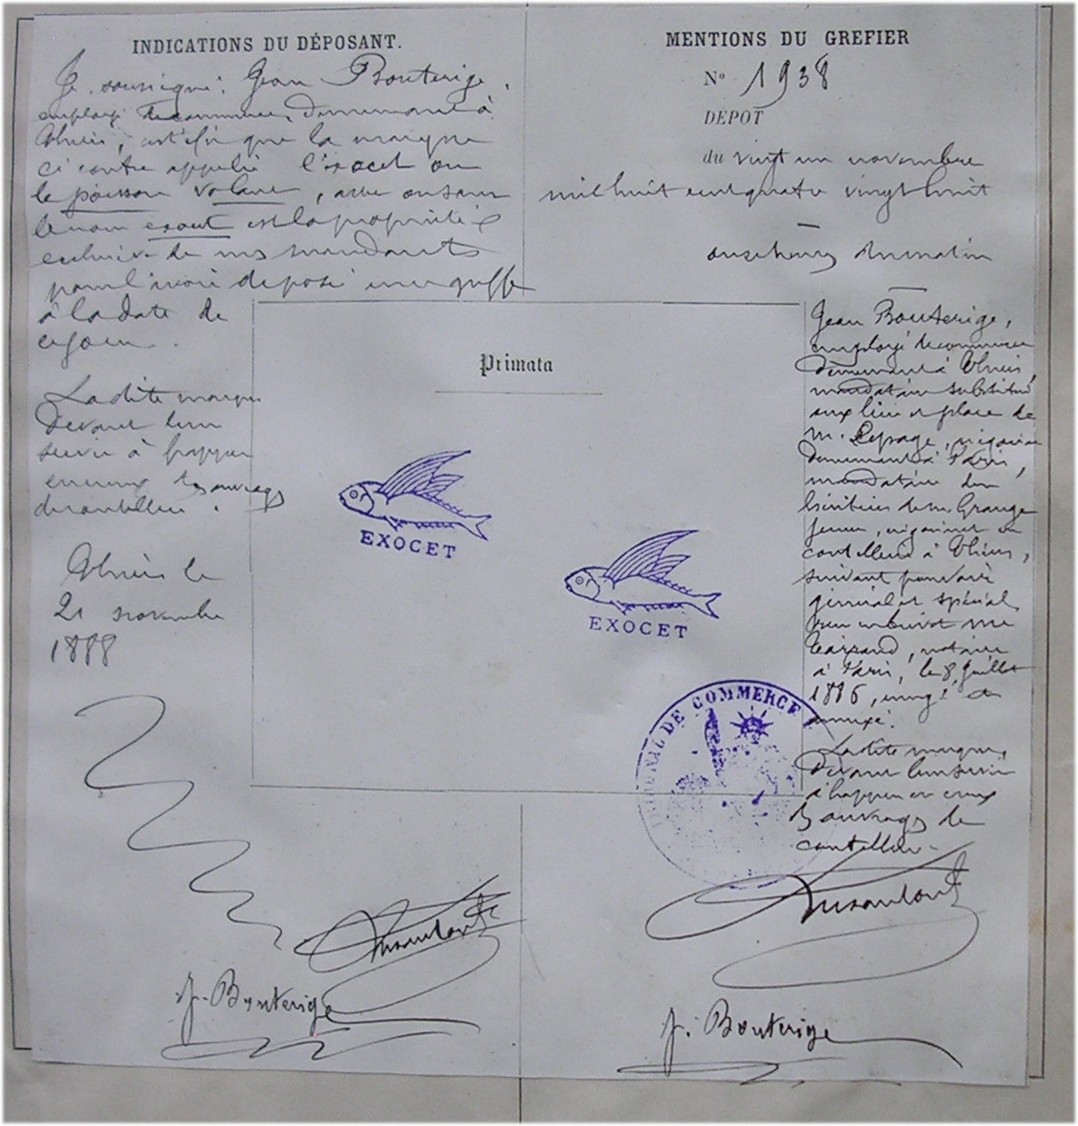 INDICATIONS DU DÉPOSANT.
Je soussigné: Jean Bouterige,
employé de commerce, demeurant à
Thiers, certifie que la marque
ci contre appelée l'exocet ou
le poisson volant, avec ou sans
le nom exocet est la propriété
exclusive de mes mandants
pour l'avoir déposé au greffe
à la date de
ce jour.
Ladite marque
devant leur
servir à frapper
en creux les ouvrages
de coutellerie.
Thiers le
21 novembre
1888
J. Bouterige
MENTIONS DU GREFIER
No 1938
DEPOT
du vingt un novembre
mil huit cent quatre vingt huit
onze heures du matin
Primata
EXOCET
EXOCET
Jean Bouterige,
employé de commerce
demeurant à Thiers,
mandataire substitué
aux lieu et place de
M. Lepage, négociant
demeurant à Paris,
mandataire des
héritiers de M. Grange
jeune, négociant en
coutellerie à Thiers,
suivant pouvoir
général et spécial
reçu en brevet Me
notaire
à Paris, le 8 Juillet
1886, enregé et
annexé.
Ladite marque,
devant leur servir
à frapper en creux
les ouvrages de
coutellerie
TRIBUNAL DE COMMERCE
J. Bouterige